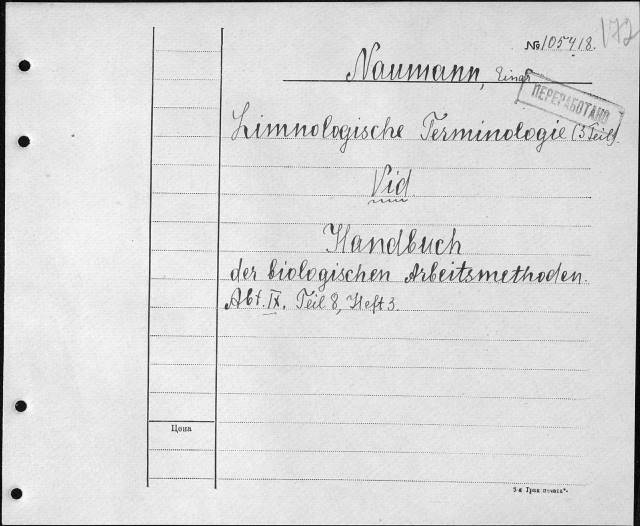 172
№ 105418.
Naumann, Einar
ПЕРЕРАБОТАНО
Limnologische Terminologie (3 Teil).
Vid
Handbuch
der biologischen Arbeitsmethoden.
Abt. IX. Teil 8, Heft 3.
Цена